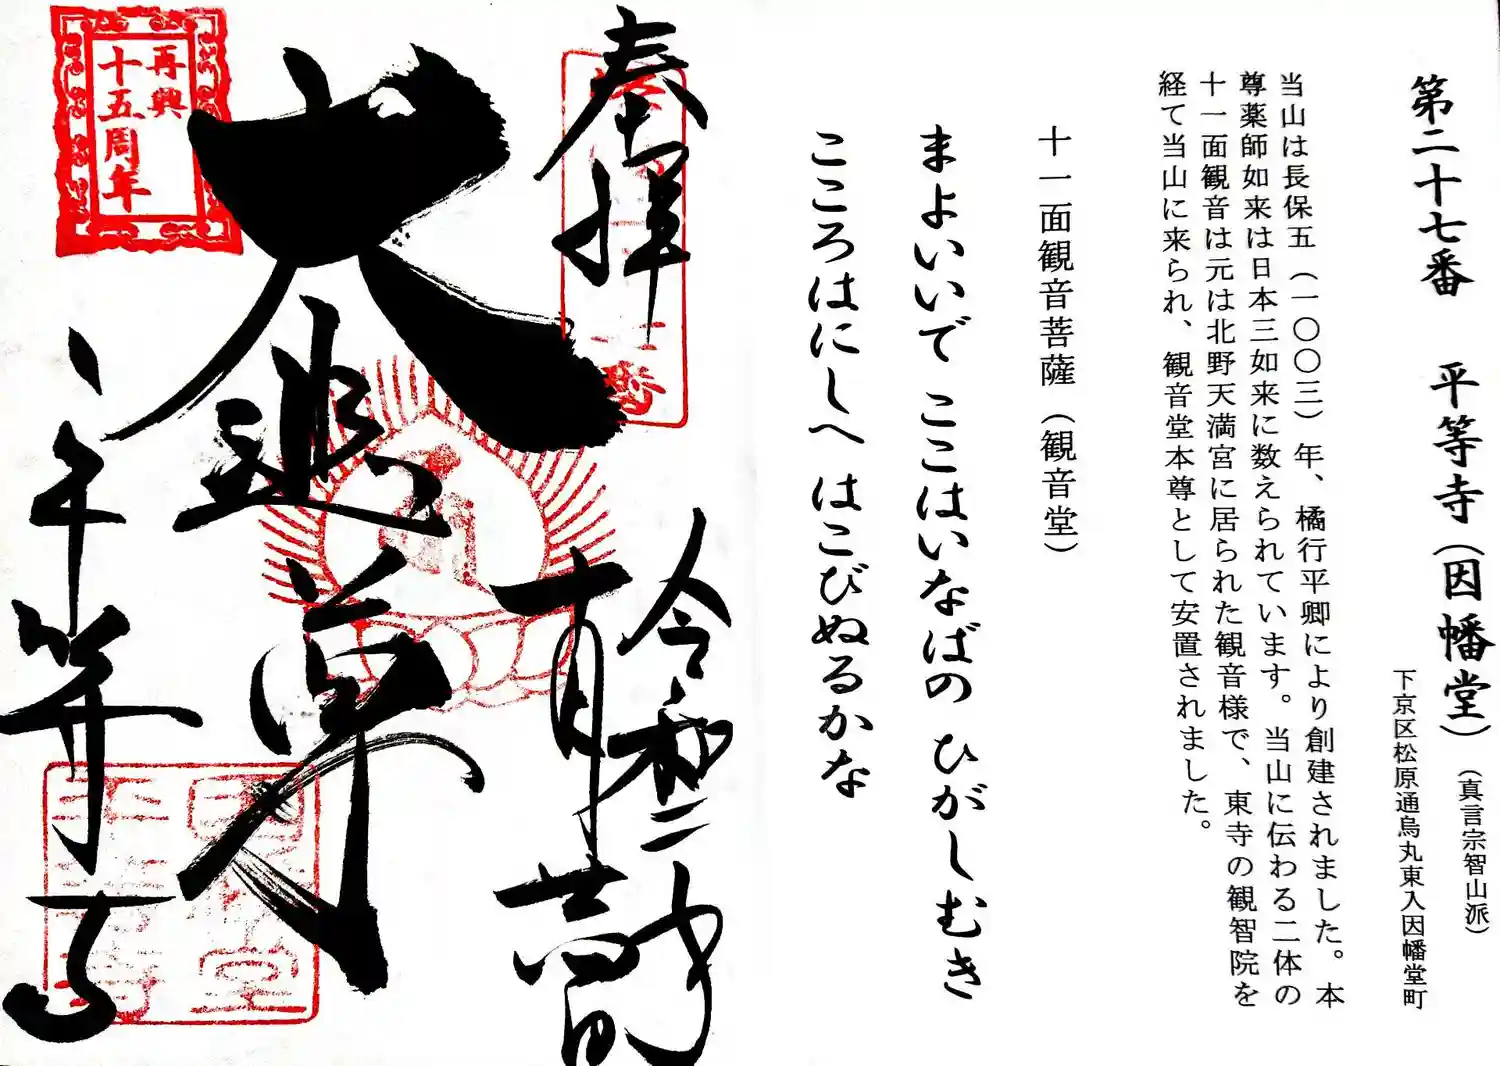 第二十七番 平等寺（因幡堂）
（真言宗智山派）
下京区松原通烏丸東入因幡堂町
当山は長保五（一〇〇三）年、橘行平卿により創建されました。本
尊薬師如来は日本三如来に数えられています。当山に伝わる二体の
十一面観音は元は北野天満宮に居られた観音様で、東寺の観智院を
経て当山に来られ、観音堂本尊として安置されました。
十一面観音菩薩（観音堂）
まよいいで ここはいなばの ひがしむき
こころはにしへ はこびぬるかな
奉拝
令和二年
大
尊
再興
十五周年
平等寺